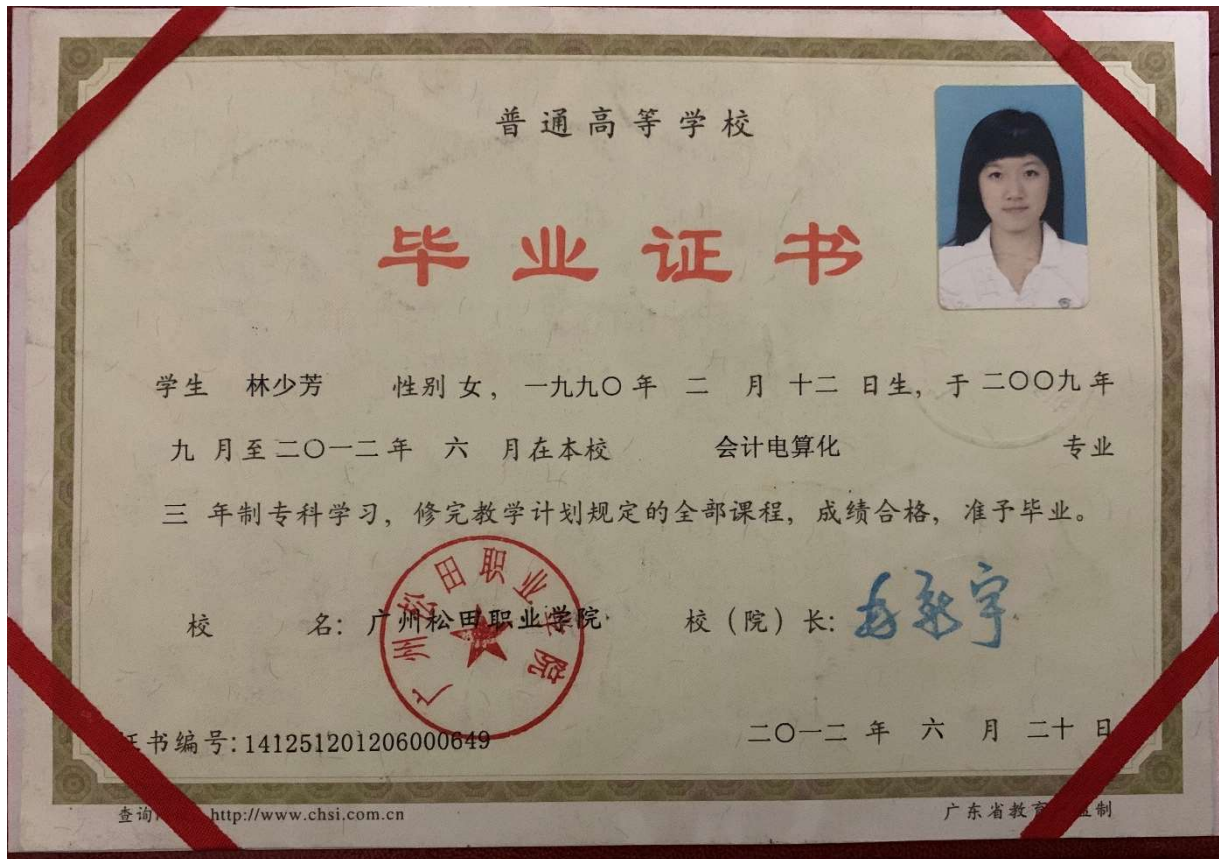 普通高等学校
毕业证书
学生 林少芳 性别 女，一九九〇年 二 月 十二 日生，于 二〇〇九年
九 月至 二〇一二年 六 月在本校 会计电算化 专业
三 年制专科学习，修完教学计划规定的全部课程，成绩合格，准予毕业。
广州松田职业学院
校 名：广州松田职业学院 校（院）长：
书编号：141251201206000649 二〇一二 年 六 月 二十 日
查询 http://www.chsi.com.cn 广东省教育 制